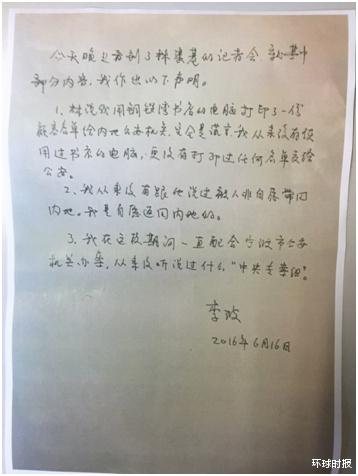 今天晚上看到了林荣基的记者会,就其中
部分内容,我作出以下声明。
1、林说我用铜锣湾书店的电脑打印了一份
600多名单给内地公安机关,完全是谎言。我从来没有使
用过书店的电脑,更没有打印过任何名单交给
公安。
2、我从来没有跟他说过被人非自愿带回
内地。我是自愿返回内地的。
3、我在这段期间一直配合宁波市公安
机关办案,从来没听说过什么“中央专案组”。
李波
2016年6月16日
环球时报